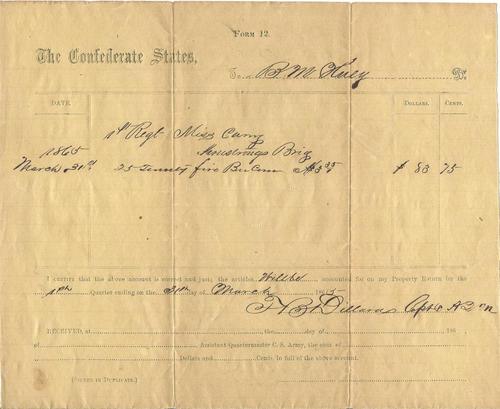 Form 12.
The Confederate States,
To B. M. Huey Dr.
DATE. Dollars. Cents.
1st Regt Miss Cavy
1865 Armstrongs Brig
March 31st 25 Twenty five Bu Corn $3 35 $ 83 75
I certify that the above account is correct and just; the articles will be accounted for on my Property Return for the
1st Quarter ending on the 31st day of March 1865
Dillard Capt & AQM
RECEIVED, at the day of 186
of Assistant Quartermaster C. S. Army, the sum of
Dollars and Cents, in full of the above account.
(Signed in Duplicate.)